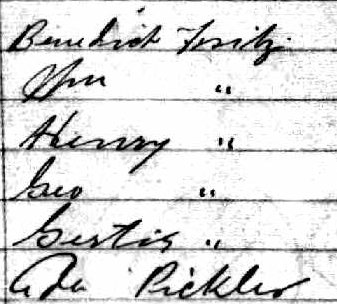 Benedict Fritz
Wm "
Henry "
Geo "
Gertis "
Ada Pickler